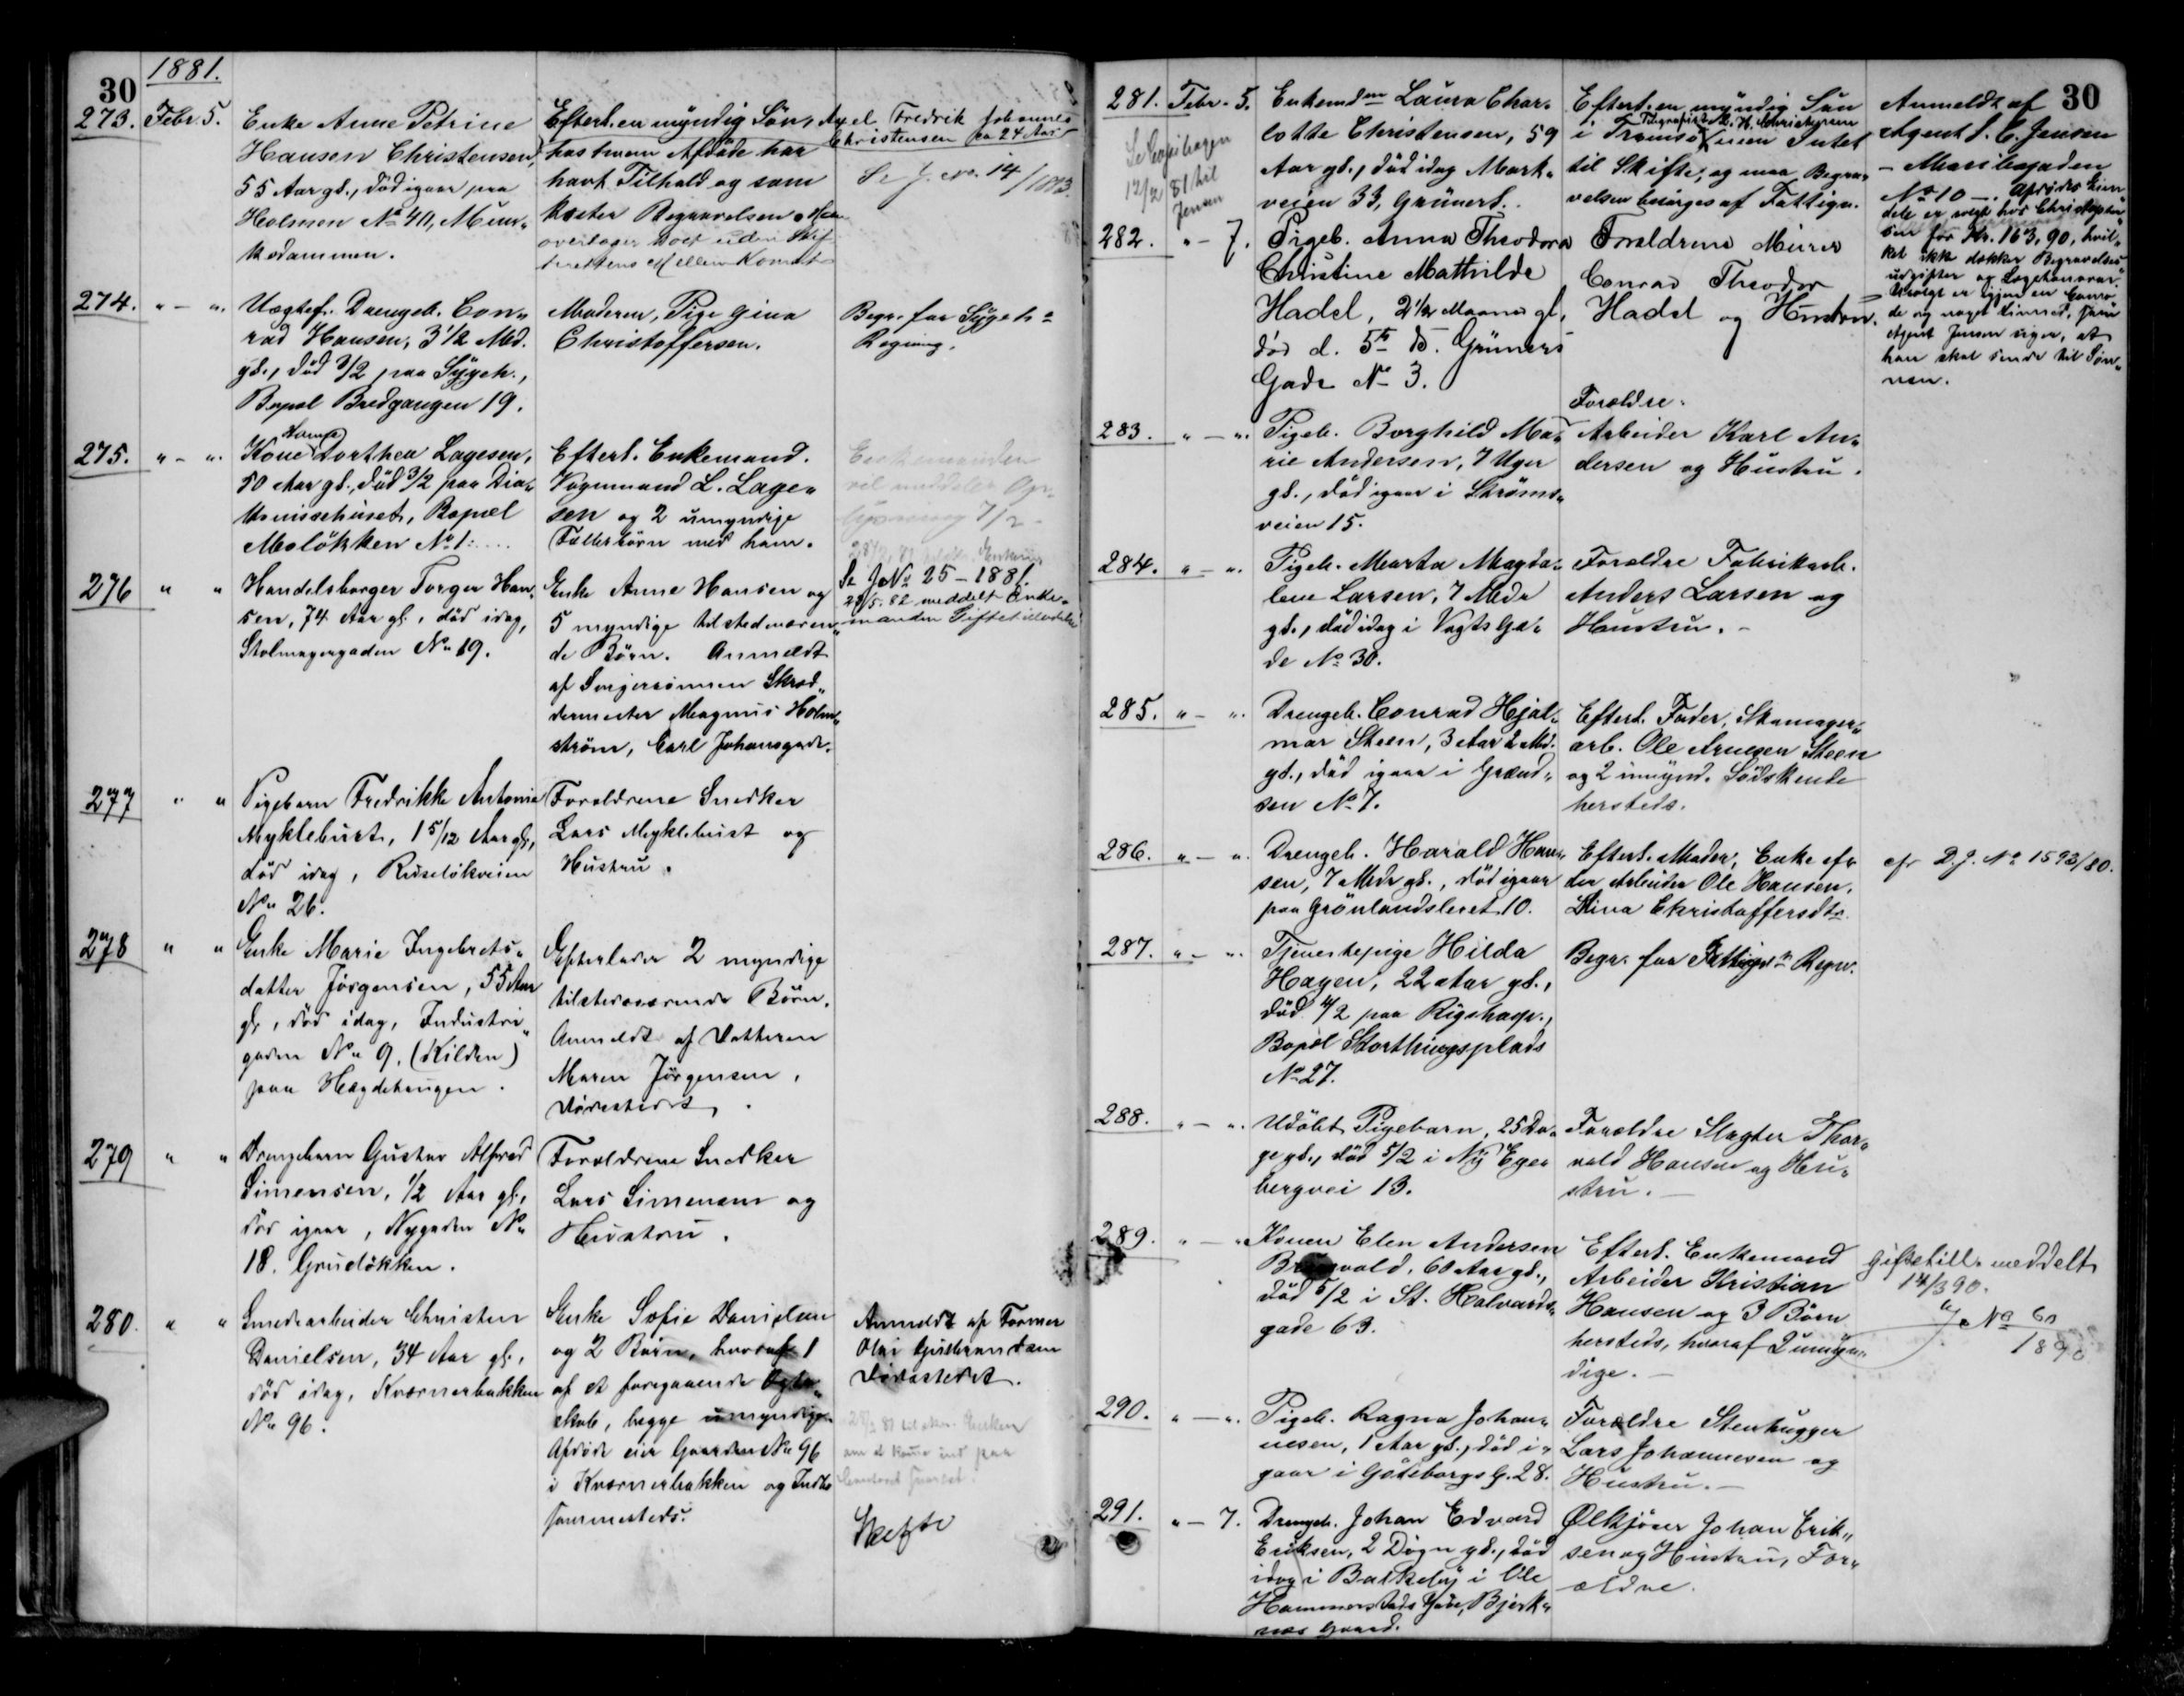 30
1881.
273. Febr. 5. Enke Anne Petrine
Hansen Christensen,
55 Aar gl., död igaar paa
Holmen No 40, Mun-
kedammen.
Efterl. en myndig Søn, Axel Fredrik Johannes
Christensen ca 24 Aar
hos hvem Afdøde har
havt Tilhold og som
koster Begravelsen. Han
overtager Boet uden Skif-
terettens Mellemkomst
Se J. No. 14/1883.
274. " - ". Uægtef. Drengeb. Con-
rad Hansen, 3 1/2 Md.
gl., död 3/2 paa Sygeh.,
Bopæl Bredgangen 19.
Moderen, Pige Gina
Christoffersen.
Begr. for Sygeh-
Regning.
275. " - ". Kone Dorthea Lagesen,
50 Aar gl., död 3/2 paa Dia-
konissehuset, Bopæl
Meslökken No 1.
Efterl. Enkemand.
Vognmand L. Lage-
sen og 2 umyndige
Fællesbørn med ham.
Enkemanden
vil meddele Op-
lysning 7/2 -
Se J No 25 - 1881.
22/5. 82 meddelt Enke-
manden Giftetilladelse
276 " " Handelsborger Torger Han-
sen, 74 Aar gl., död idag,
Stolmagergaden No 19.
Enke Anne Hansen og
5 myndige tilstedværen-
de Börn. Anmeldt
af Svigersönnen Skræd-
dermester Magnus Holm-
ström, Carl Johansgade.
277 " " Pigebarn Fredrikke Antonie
Myklebust, 1 5/12 Aar gl.,
död idag, Ruselökveien
No 26.
Forældrene Snedker
Lars Myklebust og
Hustru.
278 " " Enke Marie Ingebrets-
datter Jörgensen, 55 Aar
gl., död idag, Industri-
gaden No 9. (Kilden)
paa Hægdehaugen.
Efterlader 2 myndige
tilstedeværende Börn.
Anmeldt af Datteren
Maren Jörgensen,
Dödsstedet.
279 " " Drengebarn Gustav Alfred
Simensen, 1/2 Aar gl.,
död igaar, Nygaden No
18. Grudløkken.
Forældrene Snedker
Lars Simensen og
Hustru.
280. " " Smedarbeider Christen
Danielsen, 34 Aar gl.,
död idag, Kværnerbakken
No 96.
Enke Sofie Danielsen
og 2 Börn, hvoraf 1
af et foregaaende Ægte-
skab, begge umyndige.
Afdöde eier Gaarden No 96
i Kværnerbakken og Indbo
sammesteds.
Anmeldt af Former
Olai Gulbrandsen
Dödsstedet.
Skifte
30
281. Febr. 5. Enkemdm Laura Char-
lotte Christensen, 59
Aar gl., död idag Mark-
veien 33, Grünerl.
12/2 81 til
Jensen
Efterl. en myndig Sön
Telegrafist A. H. Christensen
i Tromsö men Intet
til Skifte, og maa Begra-
velsen besörges af Fattigv.
Anmeldt af
Agent S. C. Jensen
- Maribogaden
No 10 -. Afdödes Eien-
dele er solgt hos Christophe-
sen for Kr. 163,90, hvil-
ket ikke dækker Begravelses-
udgifter og Lægehonorar.
Usolgt er igjen en Como-
de og noget Linned, som
Agent Jensen siger, at
han skal sende til Søn-
nen.
282. " - 7. Pigeb. Anna Theodora
Christine Mathilde
Hadel, 2 1/2 Maaned gl.,
död d. 5te ds. Grüners
Gade No 3.
Forældrene Murer
Conrad Theodor
Hadel og Hustru.
283. " - ". Pigeb. Borghild Ma-
rie Andersen, 7 Uger
gl., död igaar i Ströms-
veien 15.
Forældre.
Arbeider Karl An-
dersen og Hustru.
284. " - ". Pigeb. Marta Magda-
lene Larsen, 7 Mdr
gl., död idag i Vogts Ga-
de No 30.
Forældre Fabrikarb.
Anders Larsen og
Hustru. -
285. " - ". Drengeb. Conrad Hjal-
mar Steen, 3 Aar 2 Md.
gl., död igaar i Grænd-
sen No 7.
Efterl. Fader, Skomager-
arb. Ole Arnesen Steen
og 2 umynd. Södskende
hersteds.
286. " - ". Drengeb. Harald Han-
sen, 7 Mdr gl., död igaar
paa Grönlandsleret 10.
Efterl. Moder, Enke ef-
ter Arbeider Ole Hansen.
Stina Christoffersdtr.
cfr D.J. No 1593/80.
287. " - ". Tjenestepige Hilda
Hagen, 22 Aar gl.,
död 4/2 paa Rigshosp.,
Bopæl Storthingsplads
No 27.
Begr. for Fattigv. Regn.
288. " - ". Udöbt Pigebarn, 25 Da-
ge gl., död 5/2 i Ny Ege-
bergvei 13.
Forældre Slagter Thor-
vald Hansen og Hu-
stru. -
289. " - ". Konen Elen Andersen
død 5/2 i St. Halvards-
gade 63.
Efterl. Enkemand
Arbeider Kristian
Hansen og 3 Börn
hersteds, hvoraf 2 umyn-
dige. -
Giftetill. meddelt
14/3 90.
J. No 60
1890
290. " - ". Pigeb. Ragna Johan-
nesen, 1 Aar gl., död i-
gaar i Göteborgsg. 28.
Forældre Stenhugger
Lars Johannesen og
Hustru. -
291. " - 7. Drengeb. Johan Edvard
Eriksen, 2 Døgn gl., död
idag i Balkeby i Ole
Hammerstads Gade, Bjerk-
næs Gaard.
Ölkjörer Johan Erik-
sen og Hustru, For-
ældre.